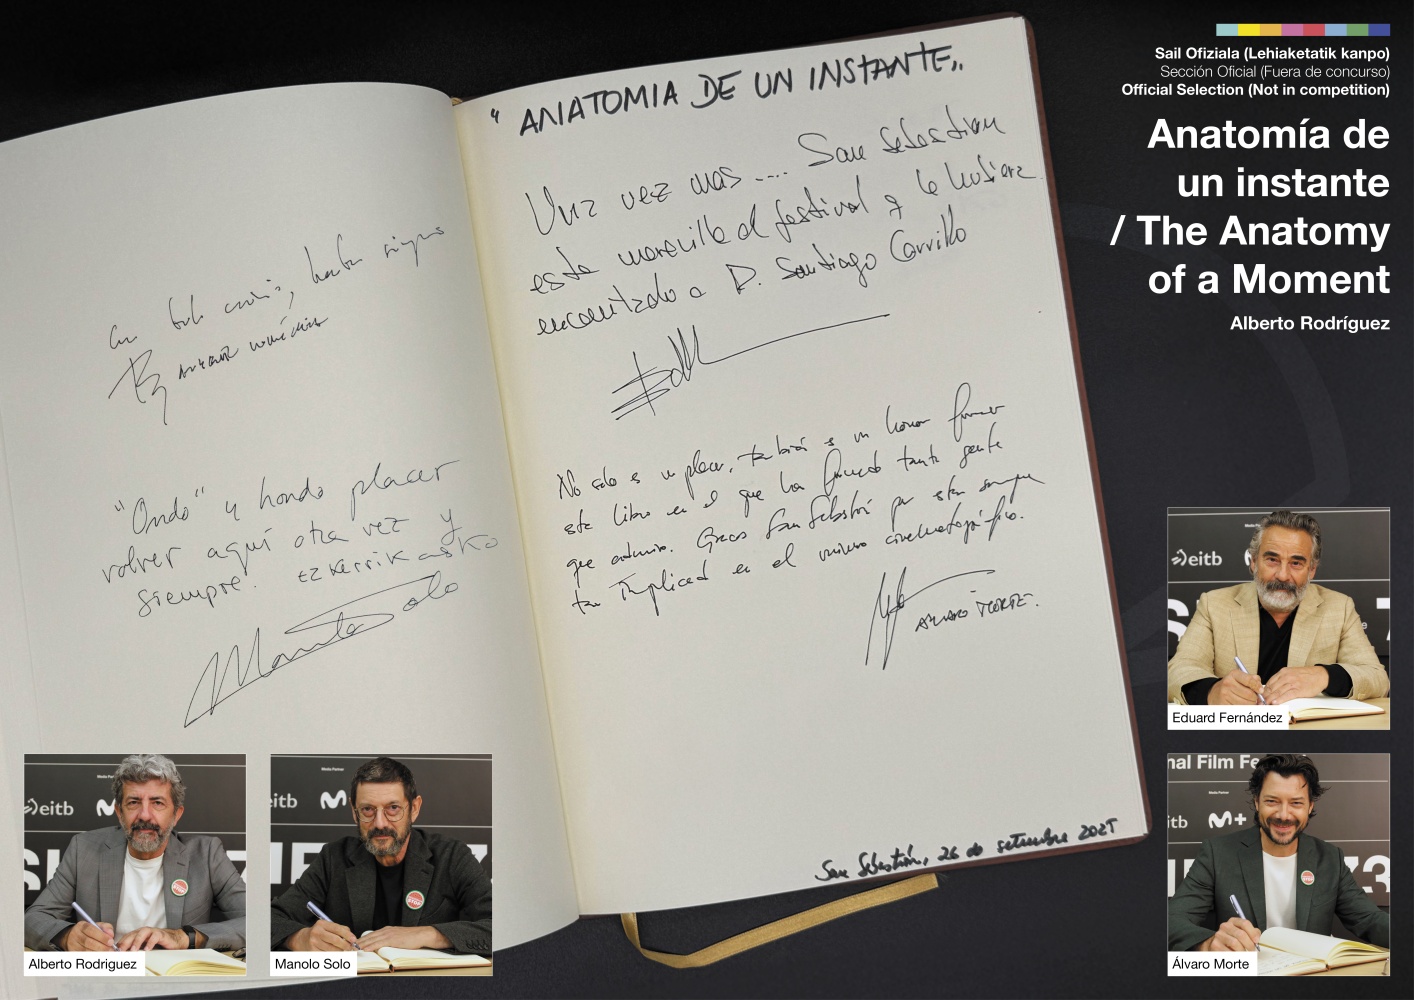 Sail Ofiziala (Lehiaketatik kanpo)
Sección Oficial (Fuera de concurso)
Official Selection (Not in competition)
Anatomía de
un instante
/ The Anatomy
of a Moment
Alberto Rodríguez
"ANATOMIA DE UN INSTANTE"
Una vez mas .... San Sebastian
esta maravilla de festival y le hubiera
encantado a D. Santiago Carrillo
No solo es un placer, también es un honor firmar
este libro en el que ha firmado tanta gente
que admiro. Gracias San Sebastián por estar siempre
tan implicad en el mismo cinematográfico.
ALVARO MORTE.
San Sebastián, 26 de setiembre 2025
"Ondo" y hondo placer
volver aquí otra vez y
siempre. EZKERRIK ASKO
Manolo Solo
eitb
Alberto Rodriguez
eitb
Manolo Solo
eitb
Eduard Fernández
nal Film Fe
itb M+
73
Álvaro Morte